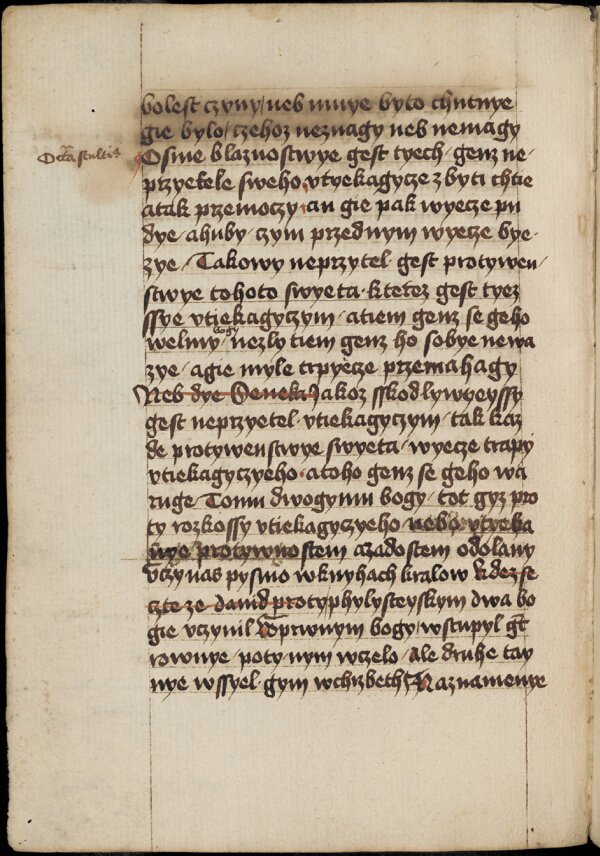 bolest czyny / neb mnye byto chutnye
gie bylo / czehoz neznagy neb nemagy
Octava stulticia
Osme blaznostwye gest tyech · genz ne-
przyetele sweho vtyekagycze zbyti chtie
atak przemoczy · an gie pak wyecze pu
dye · ahuby · czym przednym wyecze bye-
zye · Takowy neprzytel · gest protywen-
stwye tohoto swyeta · kterez gest tyez
ssye vtiekagyczym · atiem genz se geho
bogy
welmy · nezly tiem genz ho sobye newa
zye · agie myle trpyecze przemahagy
Neb dye Seneka Jakoz sskodlywyeyssy
gest neprzyetel · vtiekagyczym · tak kaz
de protywenstwye swyeta · wyecze trapy
vtiekagyczyeho · atoho genz se geho wa
ruge · Tomu dwogymu bogy · tot gyz pro
ty rozkossy vtiekagyczyeho nebo vtyeka
nye protywnostem azadostem odolany
Vczy nas pysmo wknyhach kralow Kdez se
czte ze dauid protyphylysteyskym dwa bo
gie vczynil Wprwnym bogy / wstupyl gt
rownye · poty nym wczelo / Ale druhe tay
nye wssyel · gym wchrzbeth Naznamenye